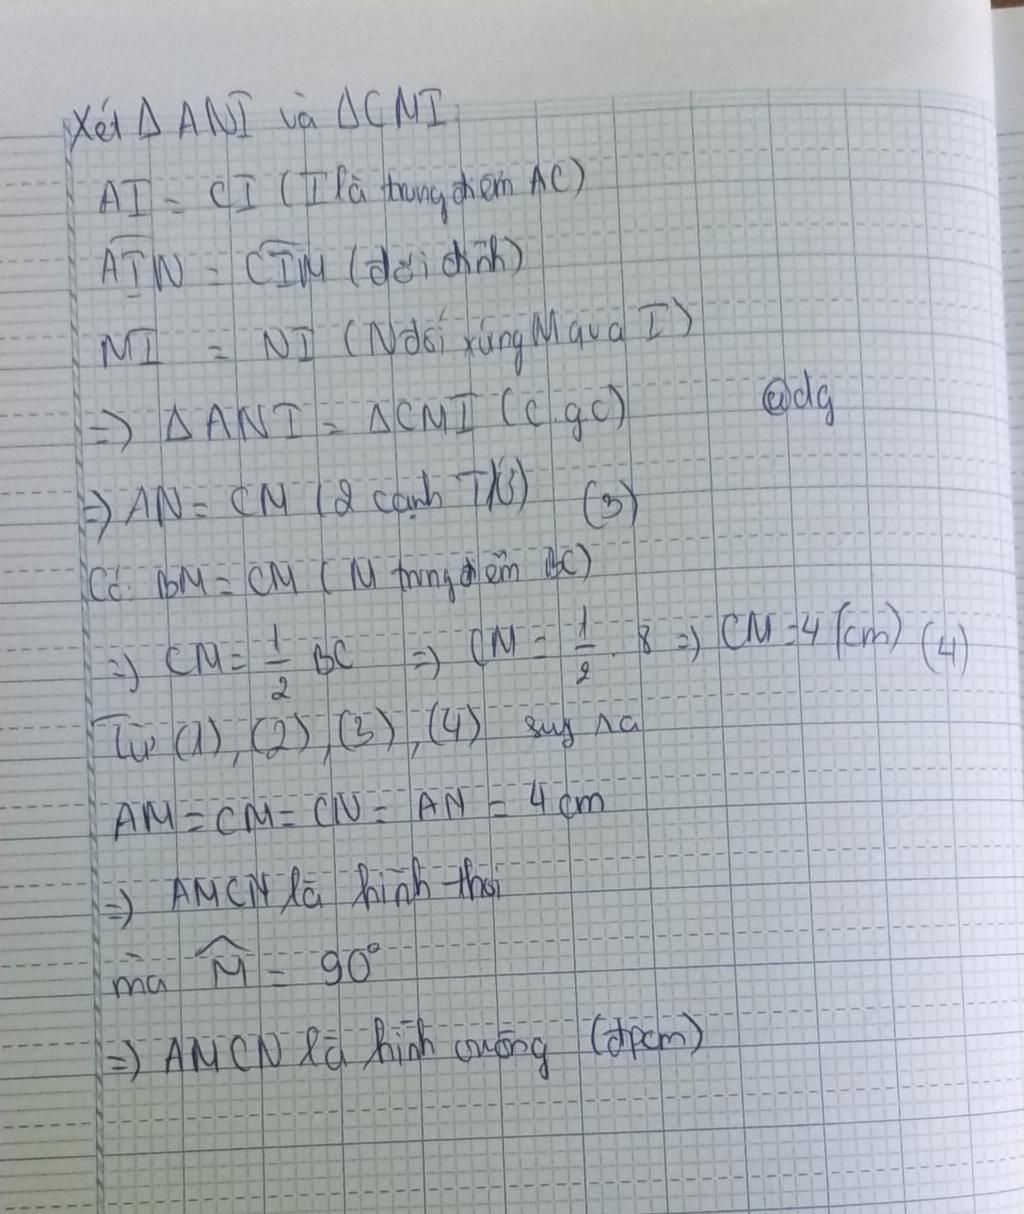 Xét Δ ANI và ΔCMI
AI = CI (I là trung điểm AC)
AIN = CIM (đối đỉnh)
MI = NI (N đối xứng M qua I)
=> Δ ANI = ΔCMI (c.gc)
@dg
=> AN = CM (2 cạnh T/Ứ) (3)
Có: BM = CM (M trung điểm BC)
=> CM = 1/2 BC => CM = 1/2 . 8 => CM = 4 (cm) (4)
Từ (1), (2), (3), (4) suy ra
AM = CM = CN = AN = 4 cm
=> AMCN là hình thoi
mà M̂ = 90°
=> AMCN là hình vuông (đpcm)